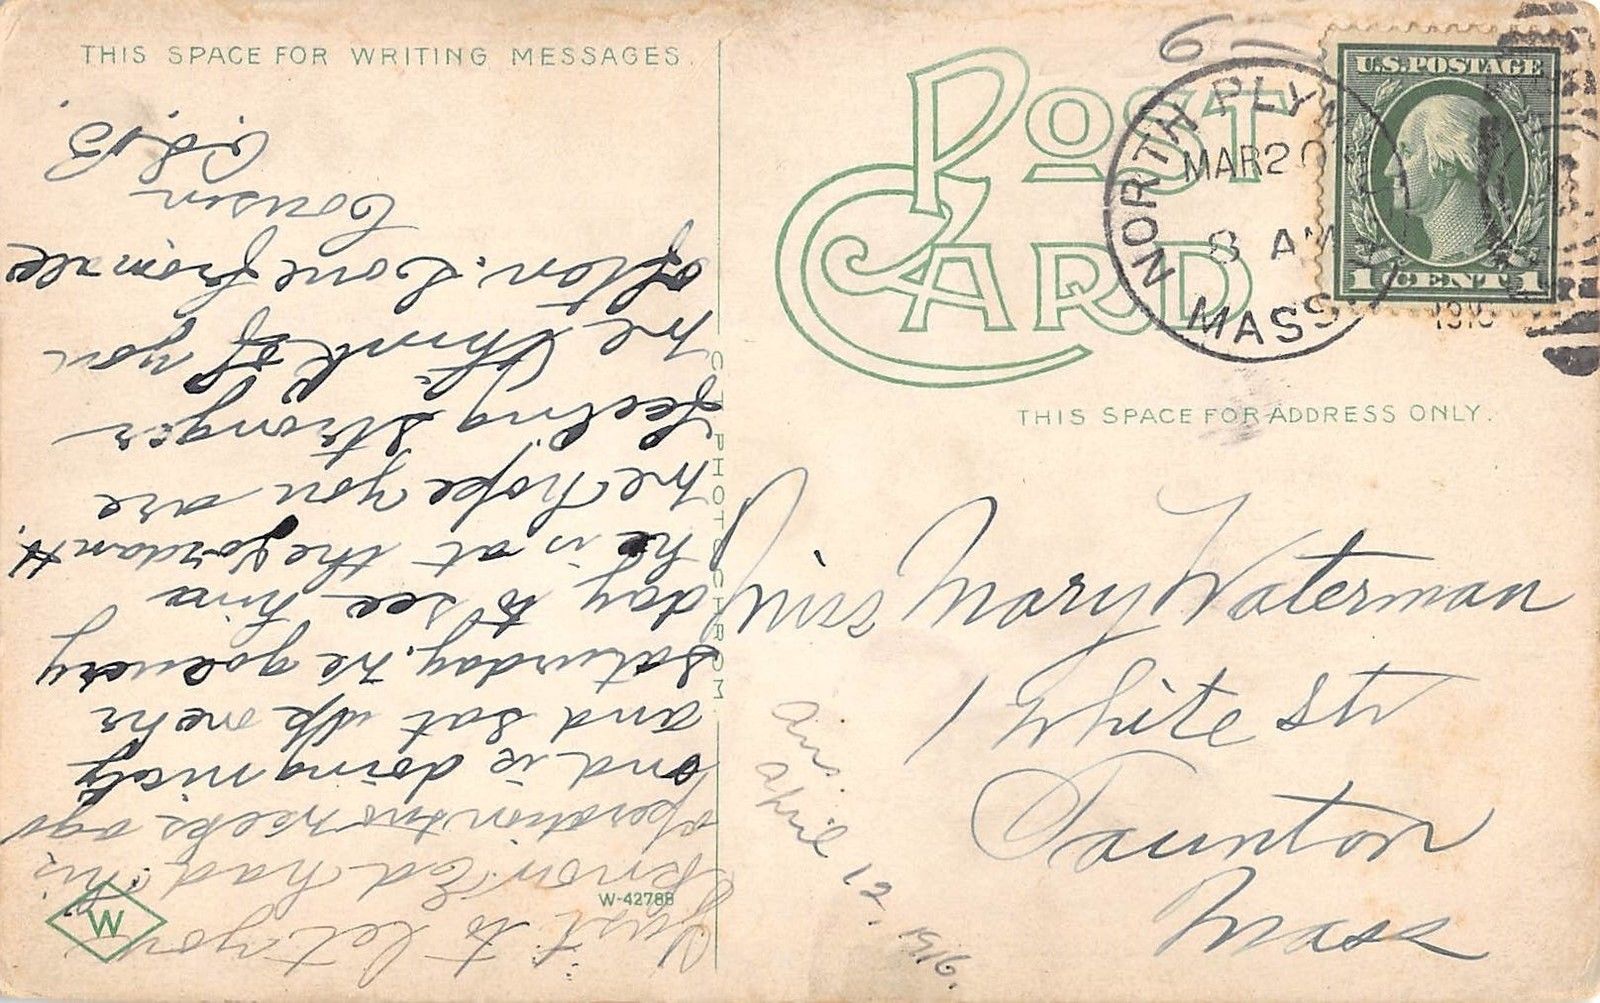 THIS SPACE FOR WRITING MESSAGES.
Just to let you
know Ed had his
operation two weeks ago
and is doing nicely
and sat up one hr
Saturday. We go every
day to see him
he is at the Jordan H.
We hope you are
feeling stronger
We think of you
often. Love from all
Cousin
C.S.B.
W
W-42788
C. T. PHOTOCHROM
POST CARD
NORTH PLYMOUTH
MAR 20
8 AM
MASS.
U.S. POSTAGE
1 CENT 1
THIS SPACE FOR ADDRESS ONLY.
Miss Mary Waterman
1 White St
Taunton
Mass
Ans.
April 12,
1916.